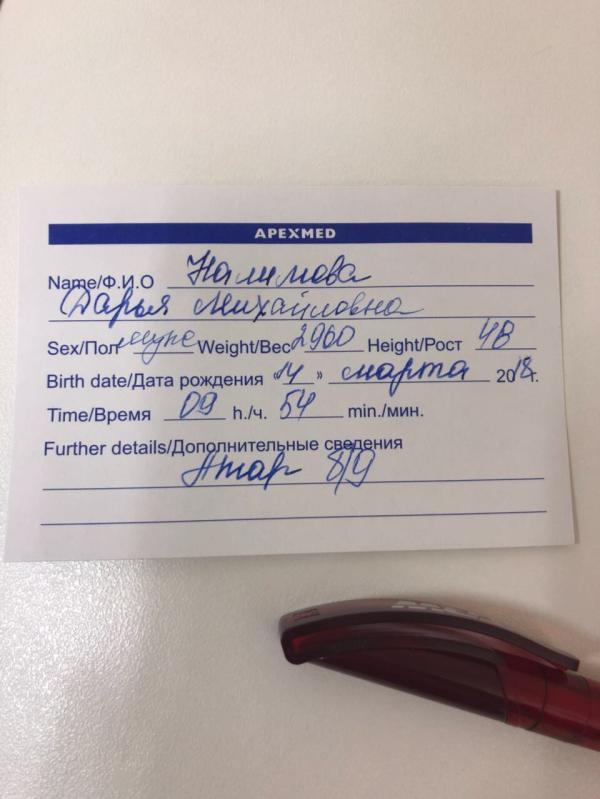 APEXMED
Name/Ф.И.О Налимова
Дарья Михайловна
Sex/Пол муж Weight/Вес 2960 Height/Рост 48
Birth date/Дата рождения "14" марта 2018г.
Time/Время 09 h./ч. 54 min./мин.
Further details/Дополнительные сведения
Апгар 8/9